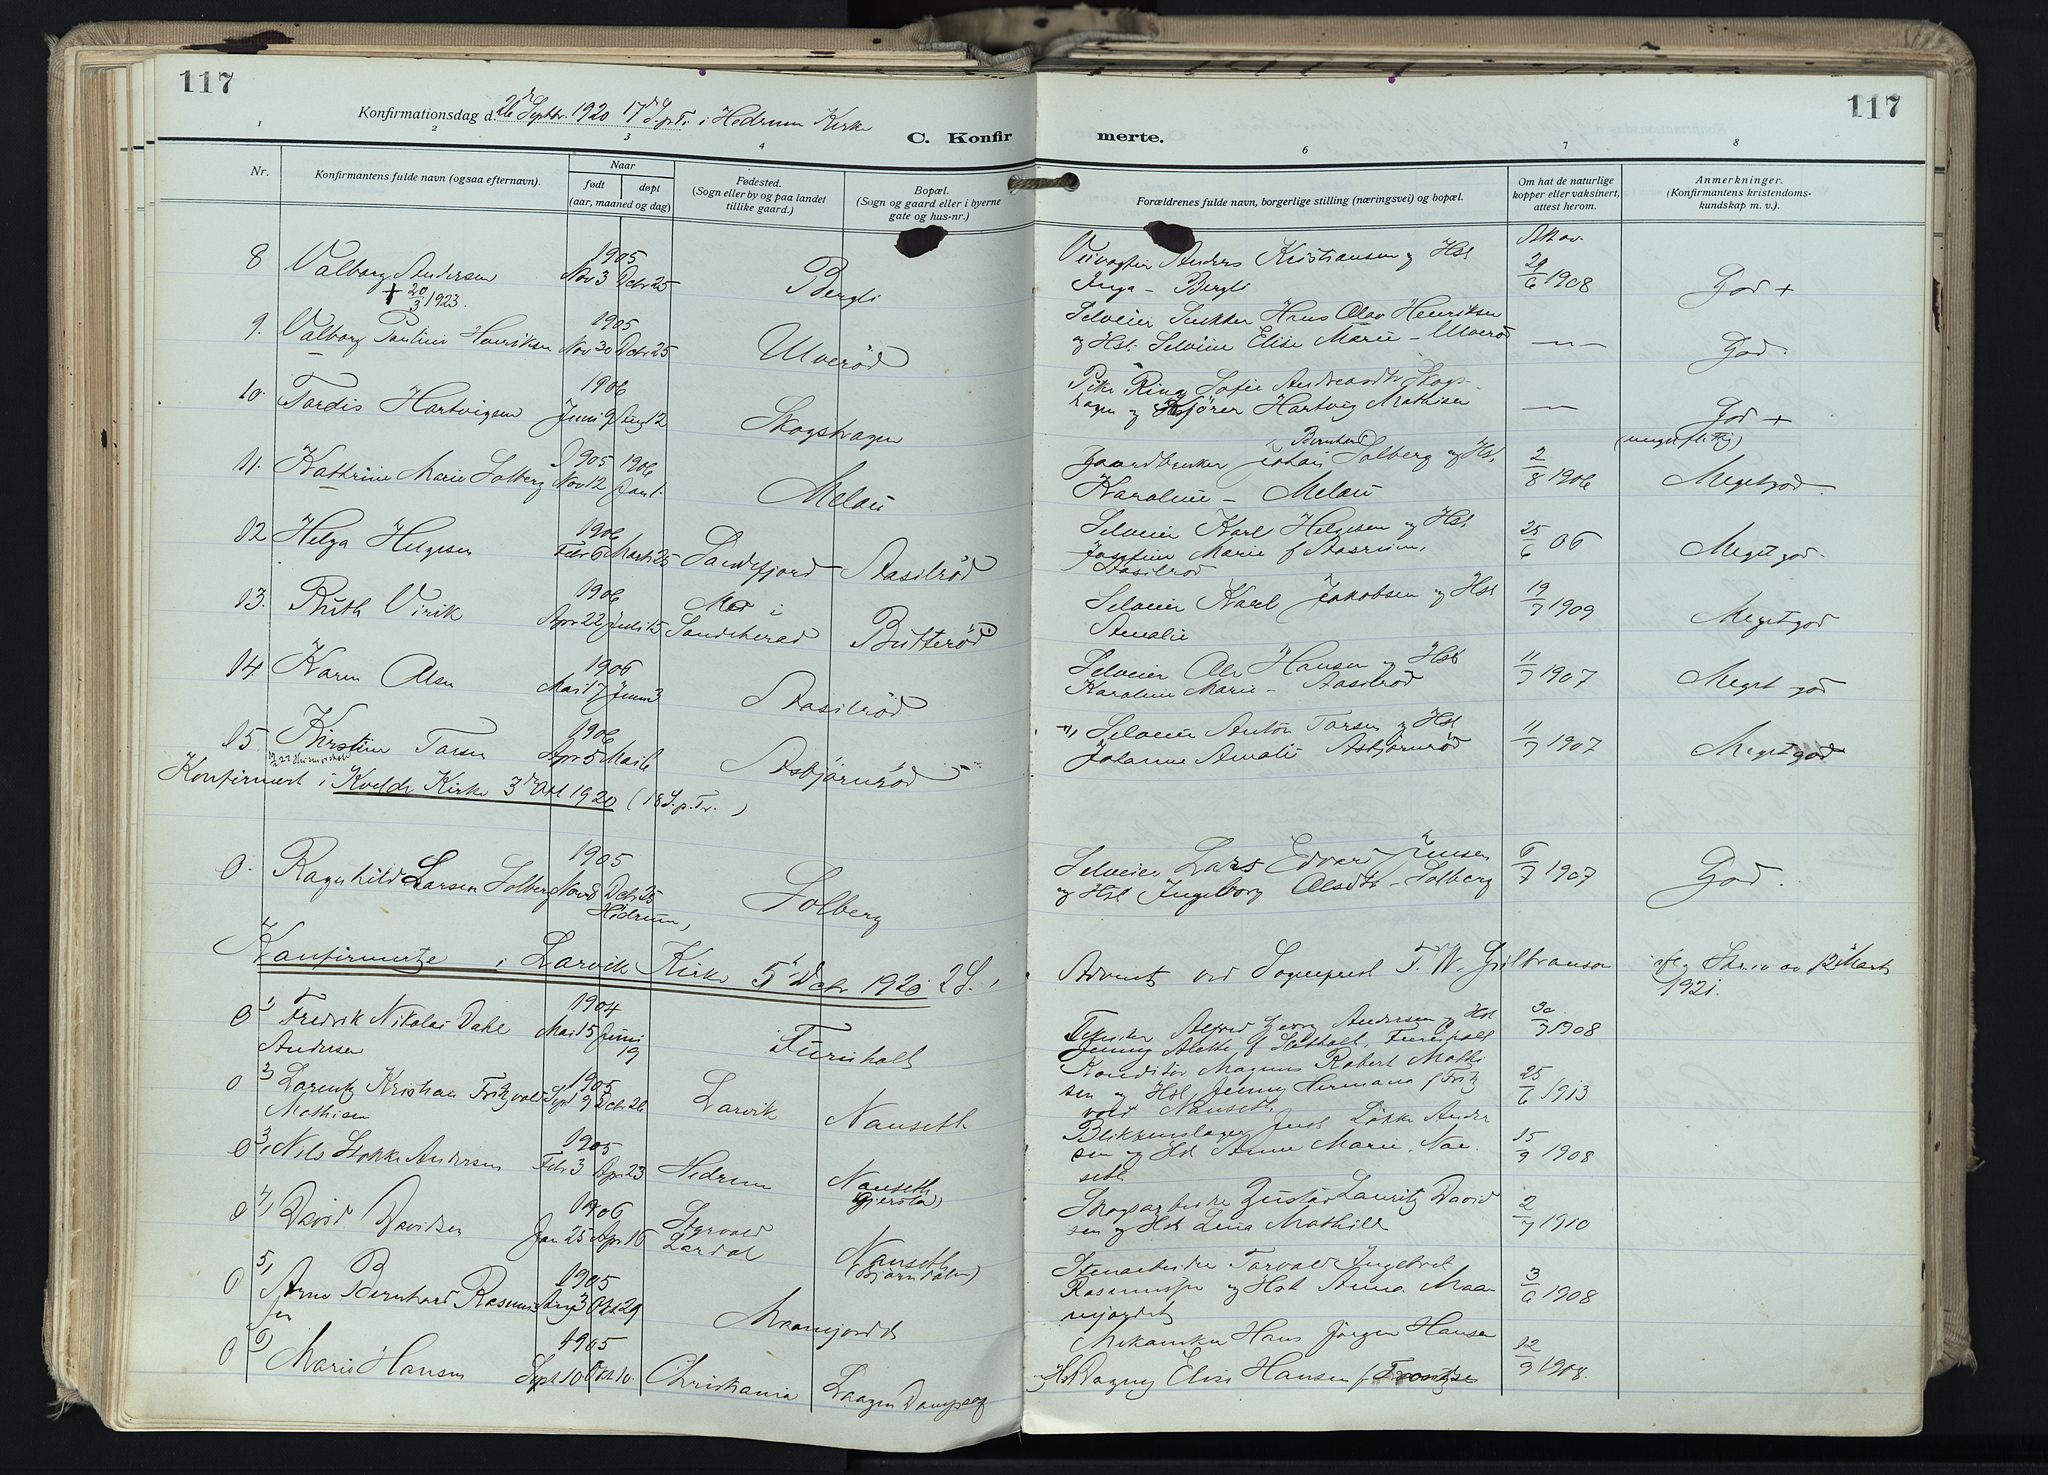 117
117
Konfirmationsdag d. 26de Septbr. 1920 17de S. p. Tr. i Hedrum Kirke
C. Konfirmerte.
1 2 3 4 6 7 8
Nr.
Konfirmantens fulde navn (ogsaa efternavn).
Naar
født
døpt
(aar, maaned og dag)
Fødested.
(Sogn eller by og paa landet
tillike gaard.)
Bopæl.
(Sogn og gaard eller i byerne
gate og hus-nr.)
Forældrenes fulde navn, borgerlige stilling (næringsvei) og bopæl.
Om hat de naturlige
kopper eller vaksinert,
attest herom.
Anmerkninger.
(Konfirmantens kristendoms-
kundskap m. v.).
8 Valborg Andersen 1905 Nov 3 Dcbr 25 Bergli Anders Kristiansen og Hst 20/6 1908 God +
+ 20/3 1923.
Inga - Bergli
9. Valborg Pauline Henriksen 1905 Nov 30 Dcbr 25 Ulverød Selveier Hans Olav Henriksen
og Hst. Elise Marie - Ulverød — God.
10. Tordis Hartvigsen 1906 Juni 9 Aug 12 Skogshagen Pike Sofie Andreasdtr Skogs-
hagen og Hartvig Mathisen — God +
(meget flittig)
11. Kathrine Marie Solberg 1905 Nov 12 1906 Jan 1. Melau Gaardbruker Johan Bernhard Solberg og Hst.
Karoline - Melau 2/8 1906 Megetgod.
12 Helga Helgesen 1906 Febr 6 Marts 25 Sandefjord Aasilrød Selveier Karl Helgesen og Hst
Josefine Marie f
Aasilrød 25/6 06 Megetgod.
13. Ruth Virik 1906 Apr 22 Juli 15 Mo i
Sandeherad Butterød Selveier Karl Jakobsen og Hst
Amalie 19/7 1909 Megetgod
14. Karen Olsen 1906 Mai 17 Juni 3 Aasilrød Selveier Ole Hansen og Hst
Karoline Marie - Aasilrød 11/7 1907 Meget god
15 Kirstine Torsen 1906 Apr 5 Mai 6 Asbjørnrød Selveier Anton Torsen og Hst
Johanne Amalie Asbjørnrød 11/7 1907 Megetgod
Konfirmert i Kvelde Kirke 3die Okt 1920 (18 S. p. Tr.)
0. Ragnhild Larsen Solberg 1905 Nov 8 Dcbr 25
Hedrum, Solberg Selveier Lars Edvard Jensen
og Hst Ingeborg Olsdtr - Solberg 6/7 1907 God.
Konfirmerte i Larvik Kirke 5te Dcbr 1920. 2 S. i
Advent, ved Sogneprest F. W. Gulbranson iflg Skriv av 12 Marts
1921.
0 1, Fredrik Nikolai Dahl
Andersen 1904 Mai 15 Juni
19 Furuholt Alfred Georg Andersen og Hst
Jenny Alette f Furuholt 30/7 1908
0 2, Larentz Kristian Fritzvold
Mathisen 1905 Spt 9 Dcbr 26 Larvik Nanseth Konditor Magnus Robert Mathi
sen og Hst Jenny Hermana f Fritz
vold Nanseth 25/6 1913
0 3, Nils Løkke Andersen 1905 Febr 3 Apr 23 Hedrum Nanseth
Blikkenslager Jens Løkke Ander
sen og Hst Anne Marie. Nan
seth 15/9 1908
0 4, David Davidsen 1906 Jan 25 Apr 16 Styrvold
Lardal Nanseth
(Bjørndalen) Skogsarbeider Gustav Lauritz David
sen og Hst Lena Mathilde 2/7 1910
0 5, Arne Bernhard Rasmus
sen 1905 Aug 3 Okt 29 Maanejordet Stenarbeider Torvald Ingebret
Rasmussen og Hst Anna. Maa-
nejordet 3/6 1908
0 6, Marie Hansen 1905 Sept 10 Christiania Laagen Dampsag Mekaniker Hans Jørgen Hansen
og Hst Dagny Elise Hansen f Frantzen 12/9 1908.